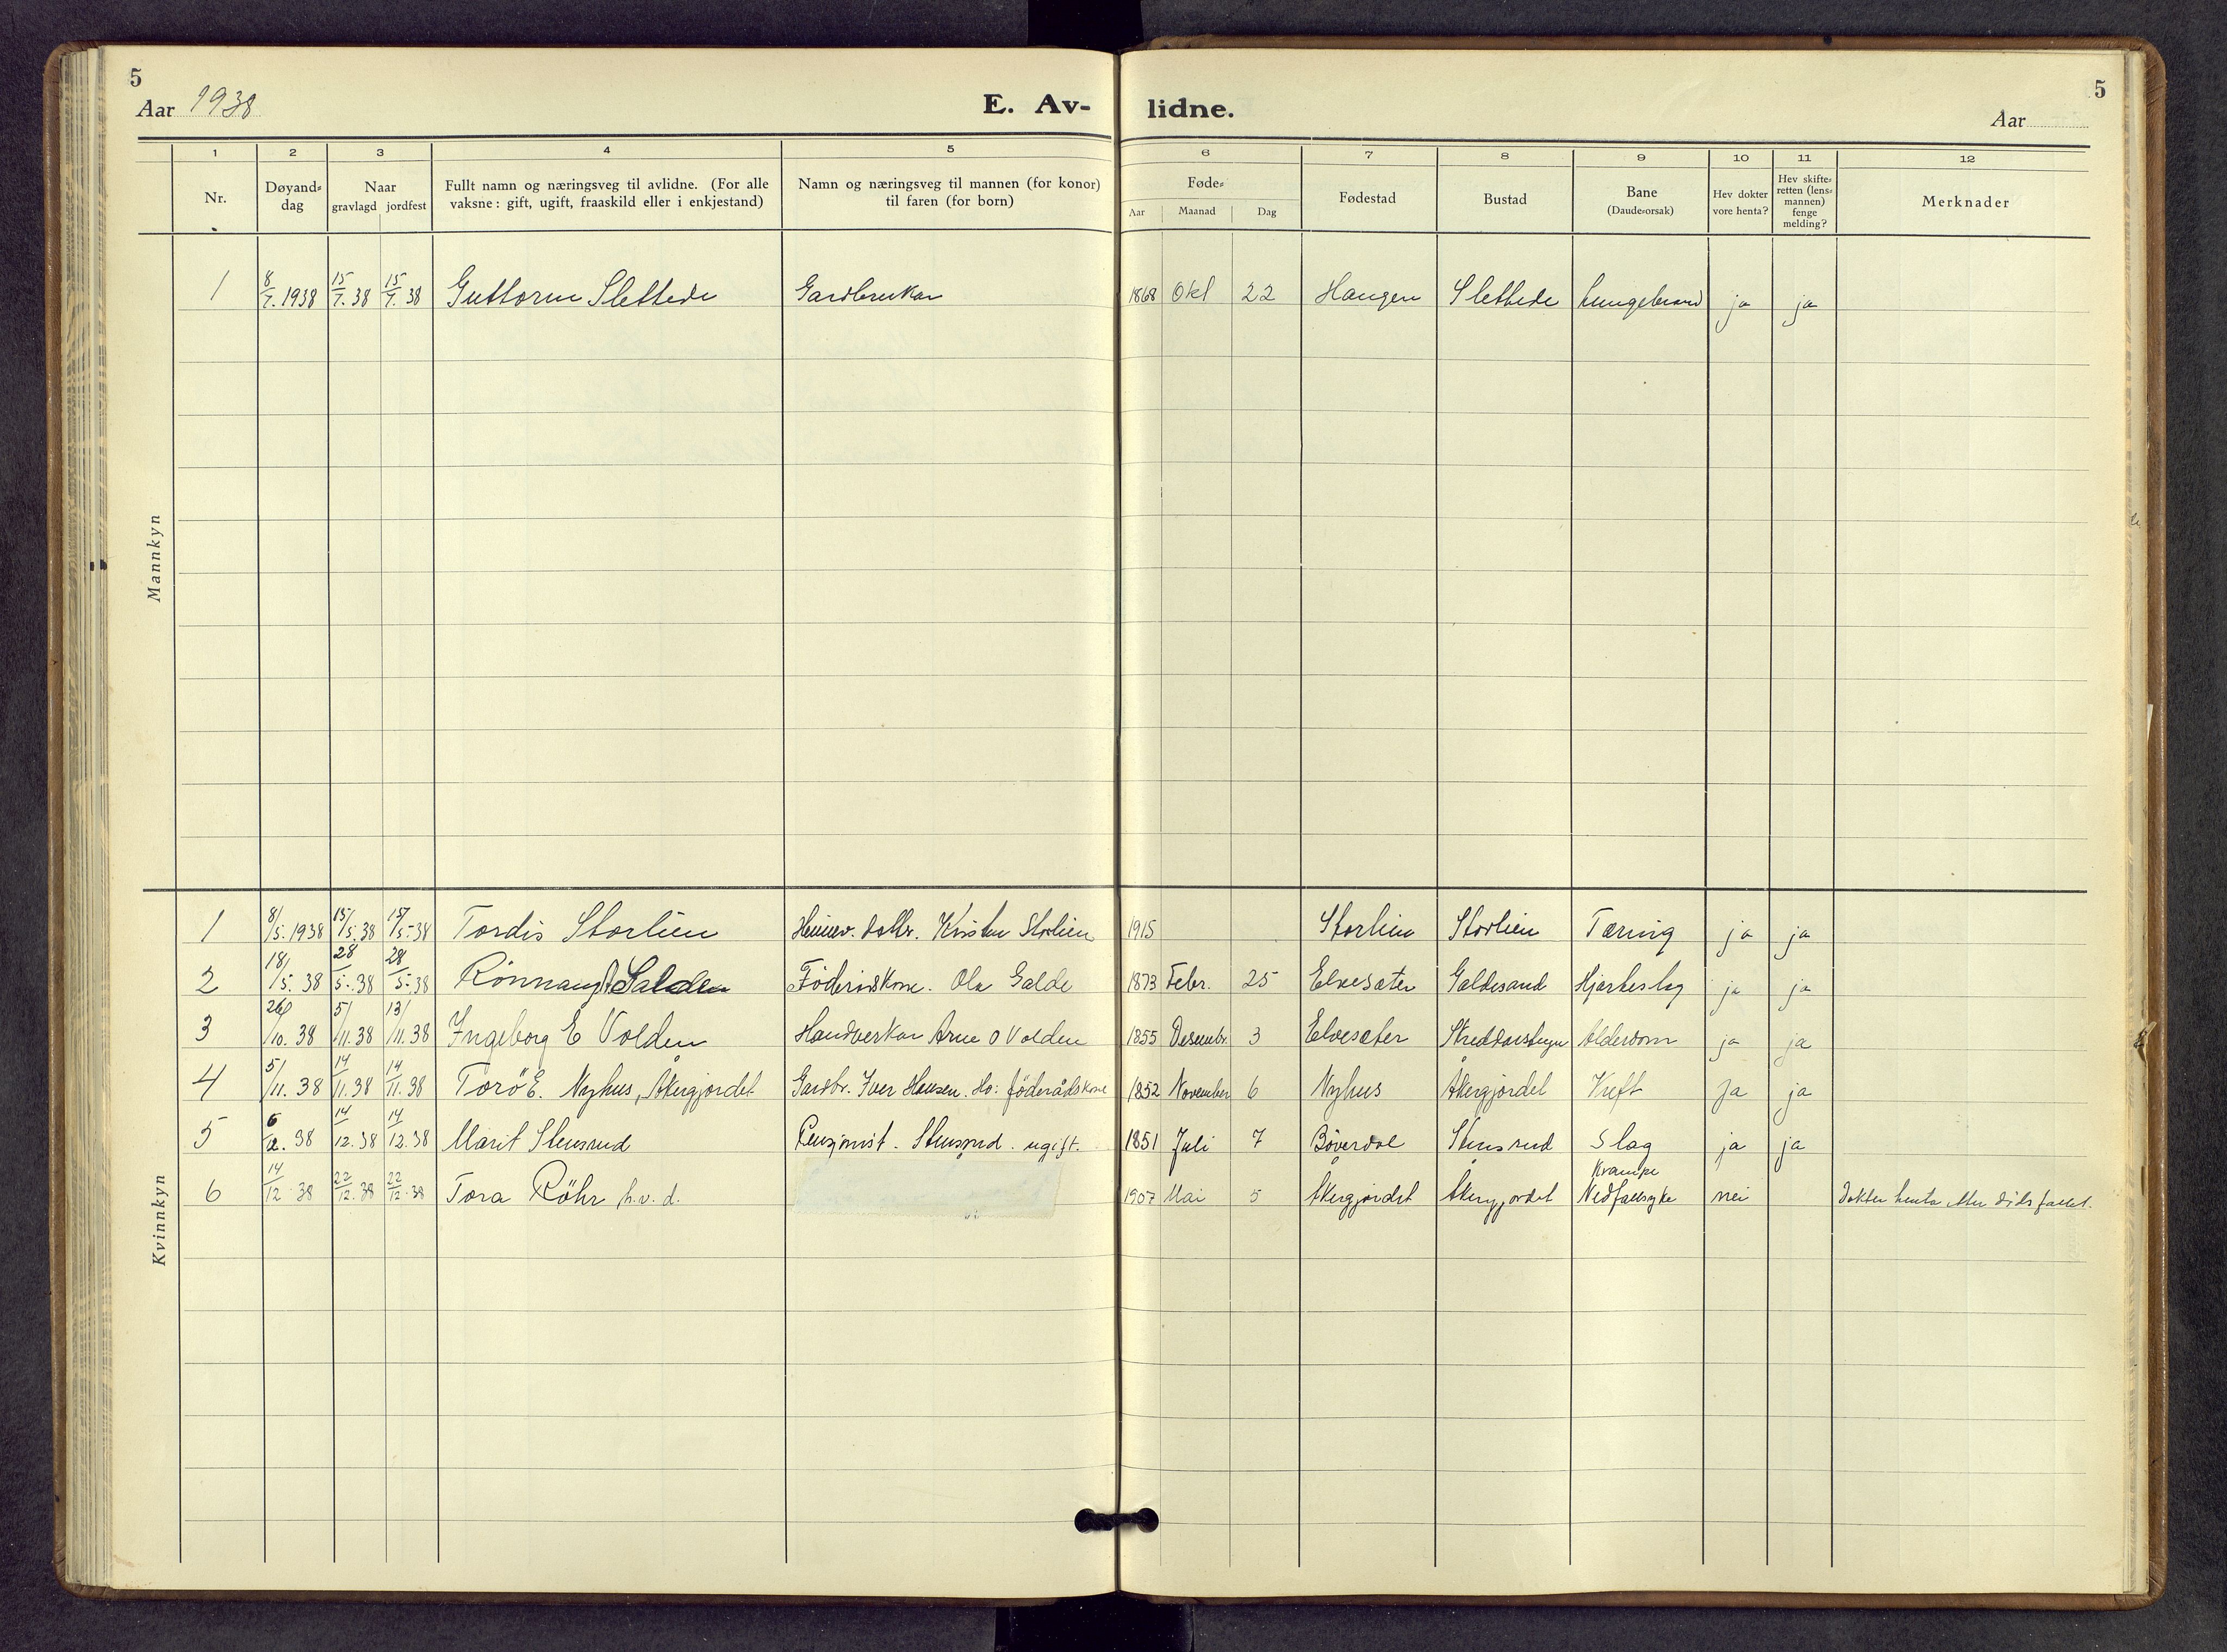 5
5
Aar 1938
E. Av-
lidne.
Aar
1 2 3 4 5 6 7 8 9 10 11 12
Nr.
Døyand-
dag
Naar
gravlagd jordfest
Fullt namn og næringsveg til avlidne. (For alle
vaksne: gift, ugift, fraaskild eller i enkjestand)
Namn og næringsveg til mannen (for konor)
til faren (for born)
Føde-
Aar Maanad Dag
Fødestad
Bustad
Bane
(Daude-orsak)
Hev dokter
vore henta?
Hev skifte-
retten (lens-
mannen)
fenge
melding?
Merknader
Mannkyn
1 8/7. 1938 15/7. 38 15/7. 38 Guttorm Slettede Gardbrukar 1868 Okt 22 Haugen Slettede Lungebrand ja ja
Kvinnkyn
1 8/5. 1938 15/5. 38 15/5. 38 Tordis Storlien Heimev. dotter. Kristen Storlien 1915 Storlien Storlien Tæring ja ja
2 18/5. 38 28/5. 38 28/5. 38 Rönnaug Galden Föderådskone. Ola Galde 1873 Febr. 25 Elvesæter Galdesand Hjarteslag ja ja
3 26/10. 38 5/11. 38 13/11. 38 Ingeborg E Volden Handverkar Arne O Volden 1855 Desembr. 3 Elvesæter Alderdom ja ja
4 5/11. 38 14/11. 38 14/11. 38 Torö E. Nyhus, Åkergjordet Gardbr. Iver Hansen. Ho: föderådskone 1852 November 6 Nyhus Åkergjordet Kreft ja ja
5 6/12. 38 14/12. 38 14/12. 38 Marit Stensrud Pensjonist. Stensrud. ugift. 1851 Juli 7 Bøverdal Stensrud Slag ja ja
6 14/12. 38 22/12. 38 22/12. 38 Tora Röhr h.v.d. 1907 Mai 5 Åkergjordet Åkergjordet Krampe
Nedfallsyke nei Dokter henta etter dödsfallet.